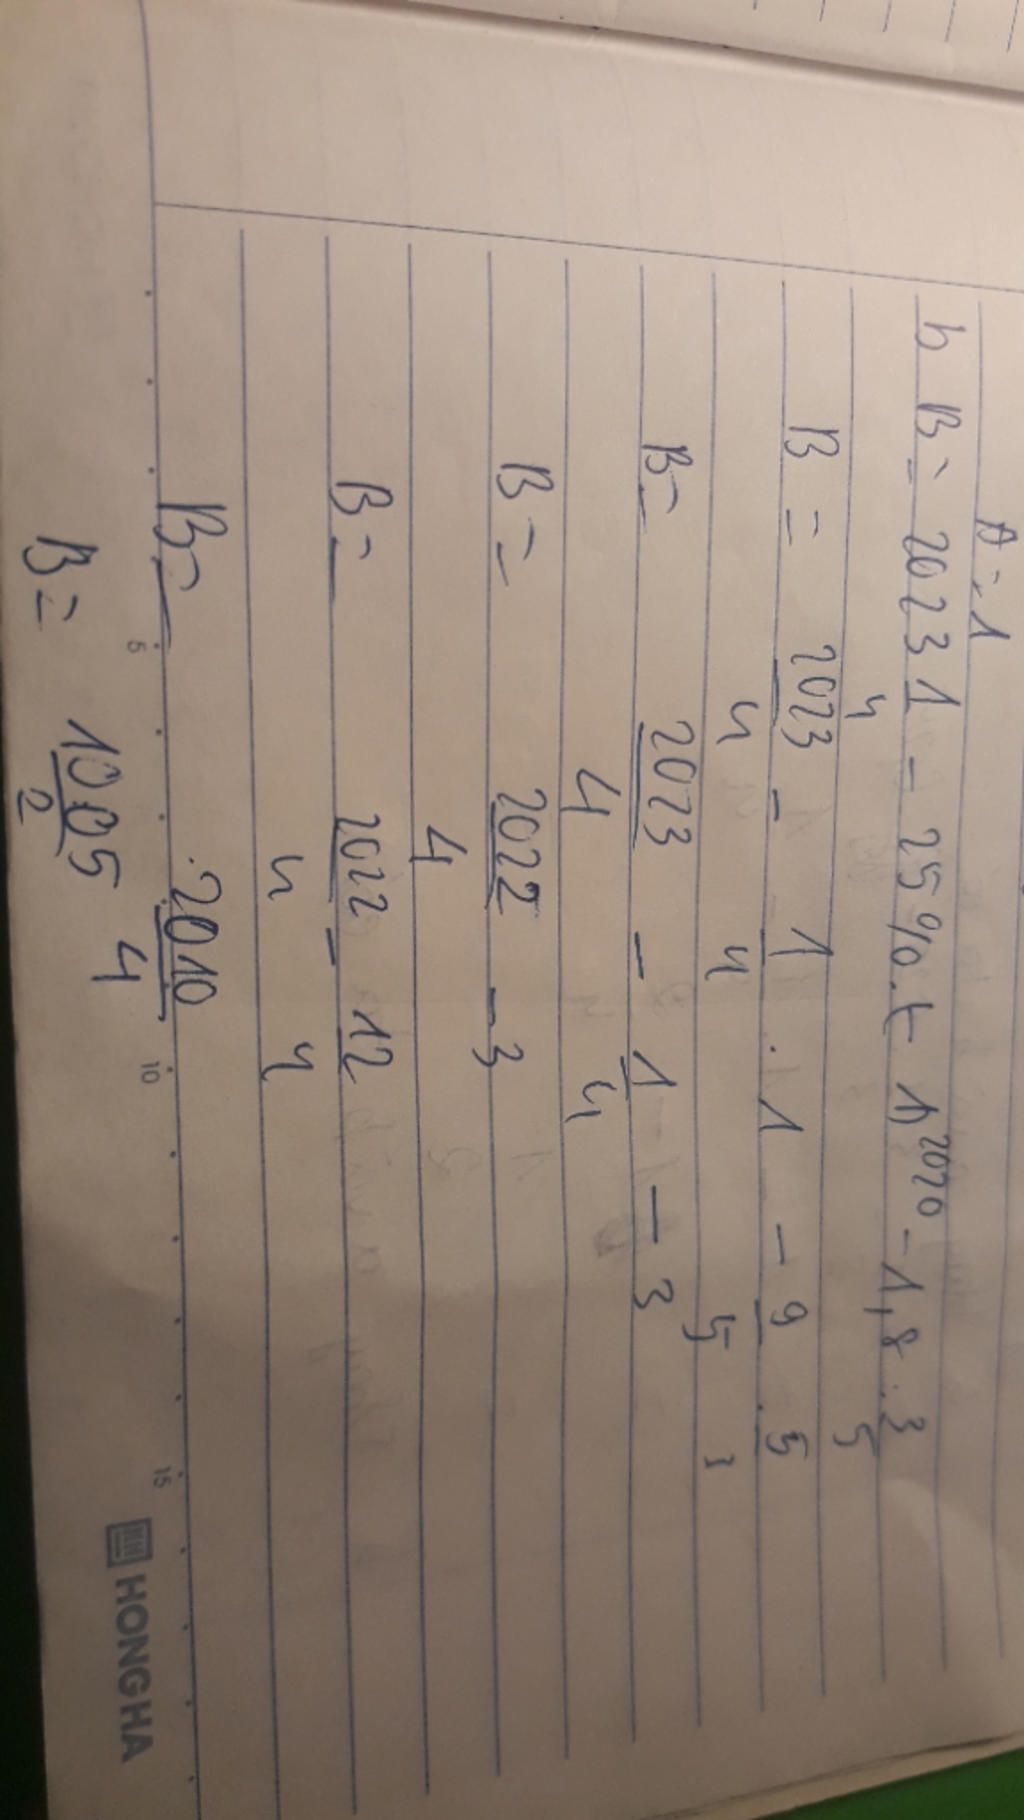 A = 1
b B = 2023 1 - 25%.(-1)²⁰²⁰ - 1,8 . 3
4 5
B = 2023 - 1 . 1 - 9 . 5
4 4 5 3
B = 2023 - 1 - 3
4 4
B = 2022 - 3
4
B = 2022 - 12
4 4
B = 2010
4
B = 1005
2
5 10 15
HONG HA